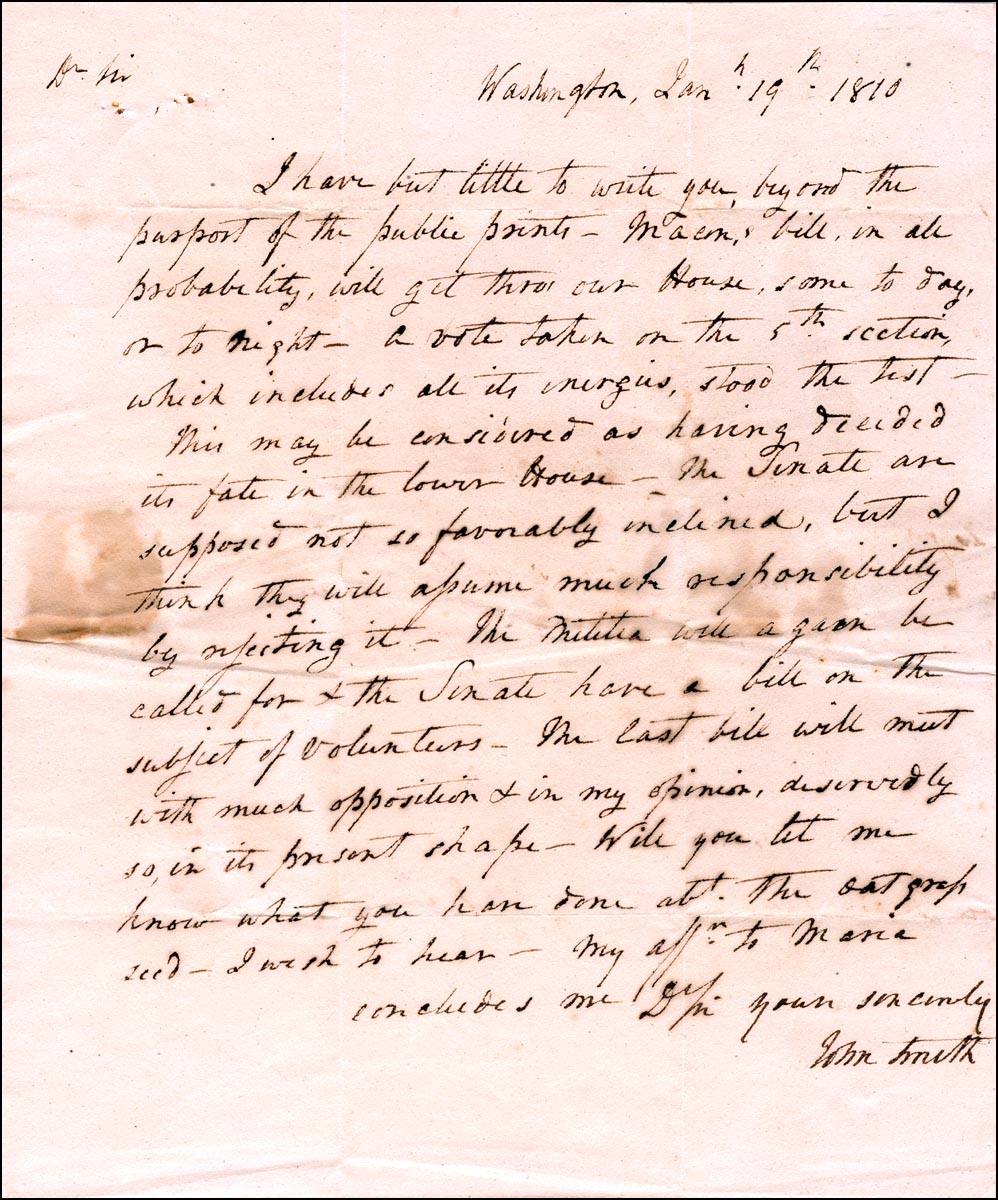 Dr Sir
Washington, Jany. 19th. 1810
I have but little to write you, beyond the
purport of the public prints – Macon,s bill, in all
probability, will get thro' our House, some to day,
or to night – a vote taken on the 5th section,
which includes all its energies, stood the test –
This may be considered as having decided
its fate in the lower House – The Senate are
supposed not so favorably inclined, but I
think they will assume much responsibility
by rejecting it – The militia will again be
called for & the Senate have a bill on the
subject of Volunteers – The last bill will meet
with much opposition & in my opinion, deservedly
so, in its present shape – Will you let me
know what you have done abt. the oat grass
seed – I wish to hear – My affn. to Maria
concludes me Dr Sir yours sincerely
John Smith